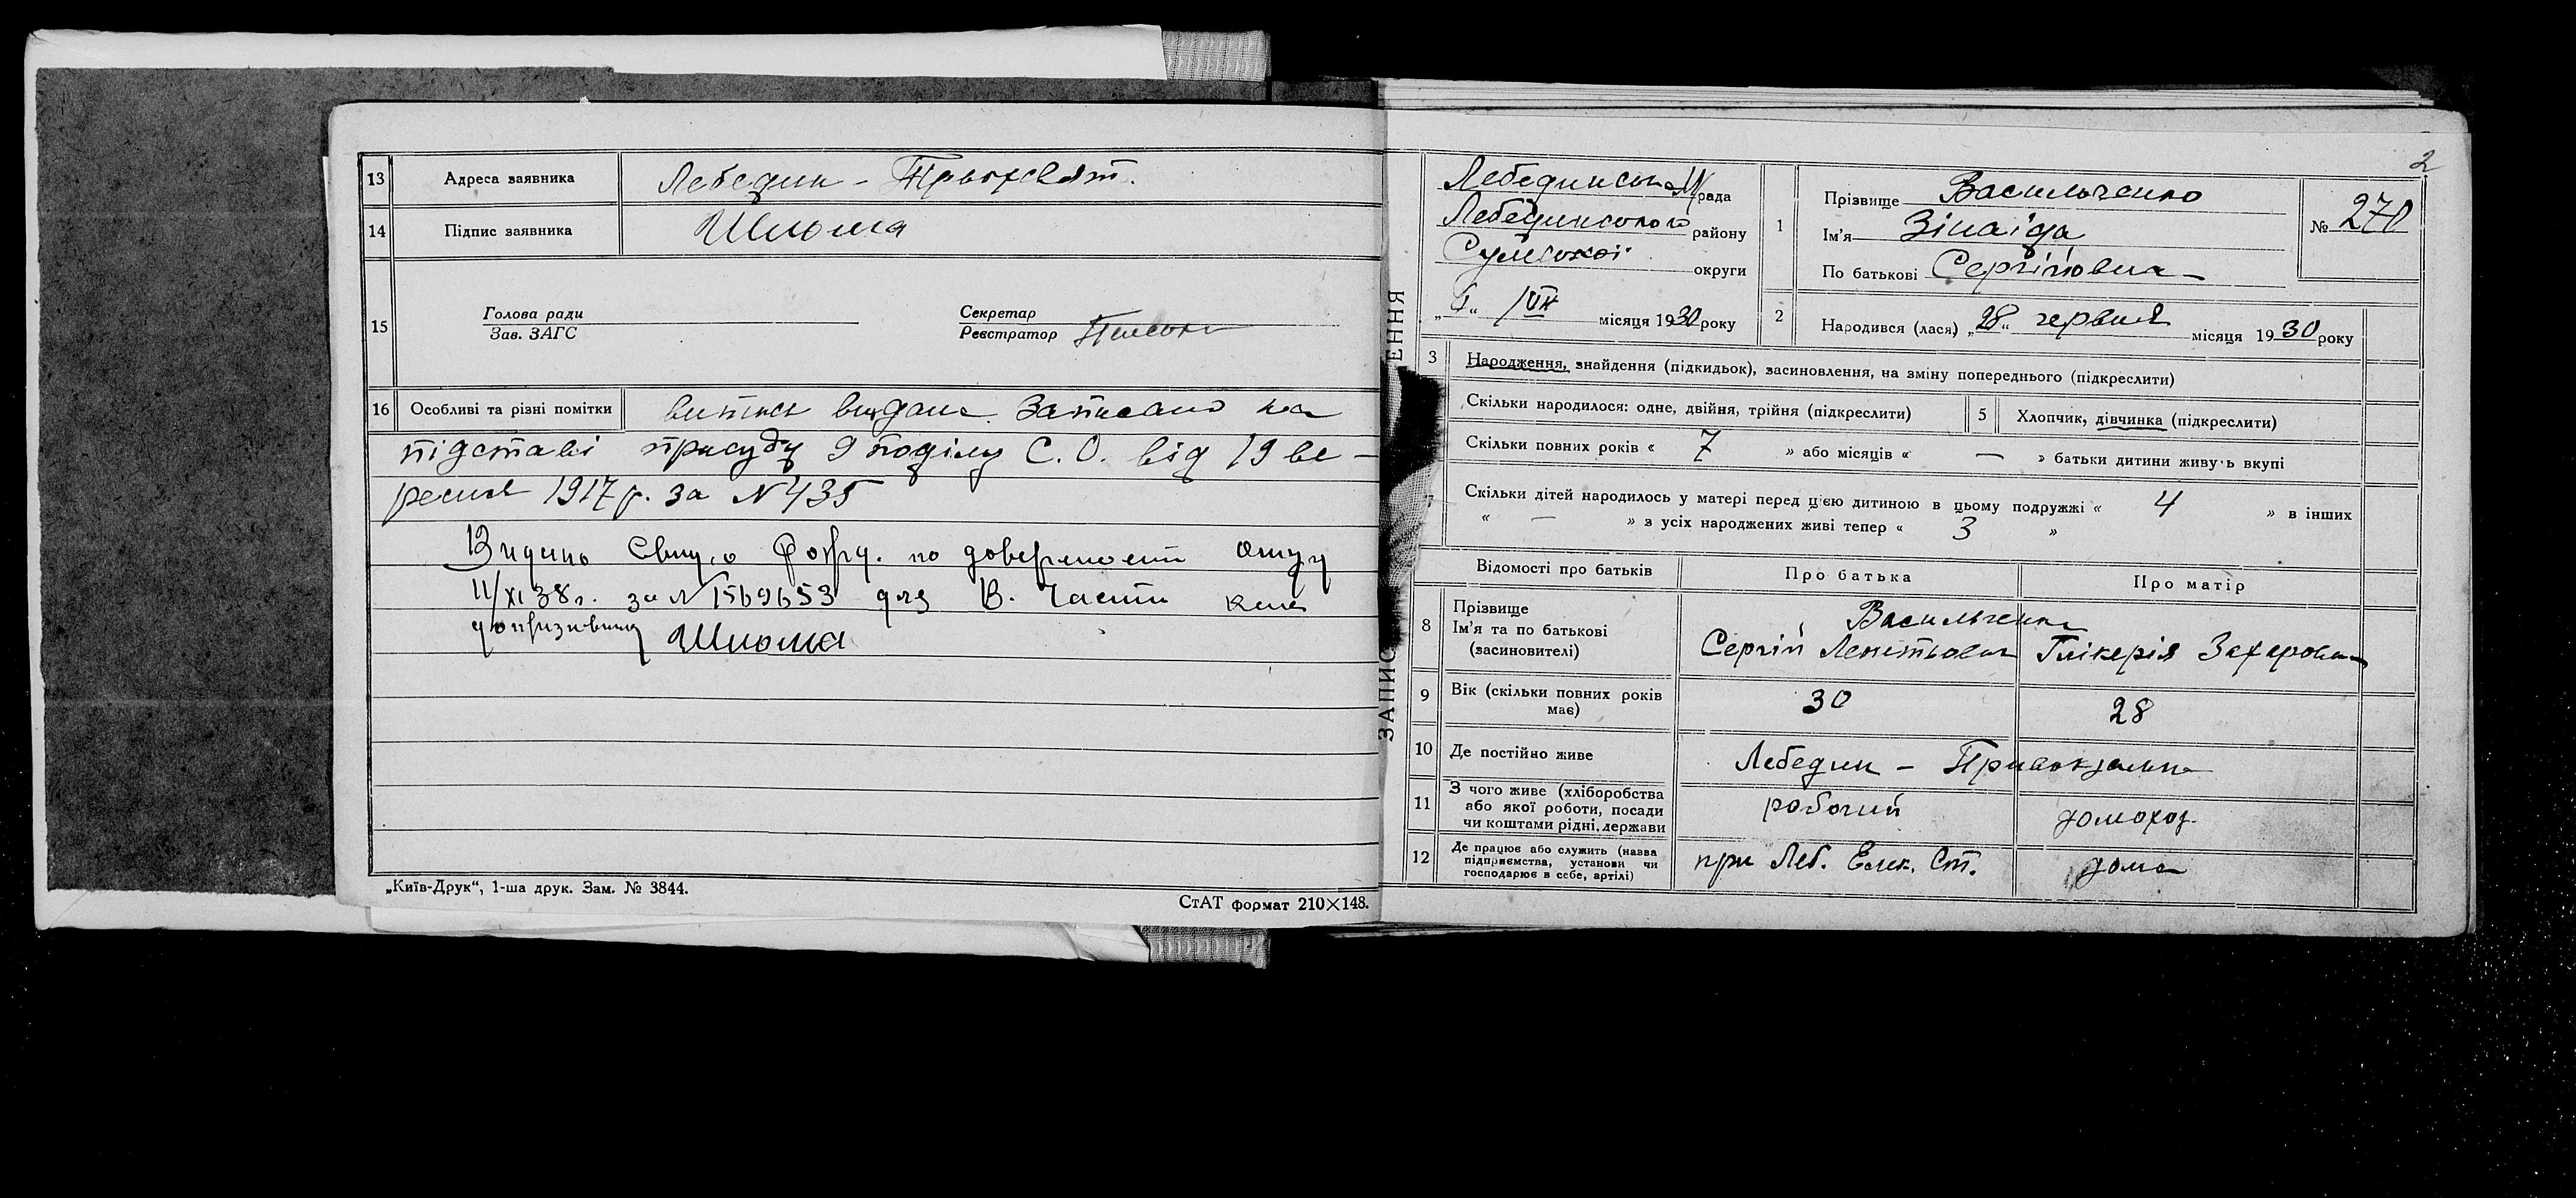 13 Адреса заявника Лебедин - Трьохсвят.
14 Підпис заявника Шлома
15 Голова ради
Зав. ЗАГС
Секретар
Реєстратор
16 Особливі та різні помітки витяг видана. Записано на
підставі присуду 9 поділу С. О. від 19 ве-
ресня 1917 р. за N 435
по
11/XI 38 г. за N 1569653 для В. Части
„Київ-Друк“, 1-ша друк. Зам. № 3844.
СтАТ формат 210×148.
2
Лебединська рада
Лебединського району
Сумської округи
місяця 1930 року
1 Прізвище Васильченко
Ім'я Зінаїда
По батькові Сергіївна
№ 270
2 Народився (лася) „28“ червня місяця 1930 року
3 Народження, знайдення (підкидьок), засиновлення, на зміну попереднього (підкреслити)
Скільки народилося: одне, двійня, трійня (підкреслити)
5 Хлопчик, дівчинка (підкреслити)
Скільки повних років « 7 » або місяців « — » батьки дитини живуть вкупі
Скільки дітей народилось у матері перед цією дитиною в цьому подружжі « 4 » в інших
« — » з усіх народжених живі тепер « 3 »
Відомості про батьків Про батька Про матір
8 Прізвище
Ім'я та по батькові
(засиновителі)
Васильченко
Сергій Глікерія Захаровна
9 Вік (скільки повних років
має)
30 28
10 Де постійно живе Лебедин - Привокзальна
11 З чого живе (хліборобства
або якої роботи, посади
чи коштами рідні, держави
робочий домохоз.
12 Де працює або служить (назва
підприємства, установи чи
господарює в себе, артілі)
при Леб. Елек. Ст. дома